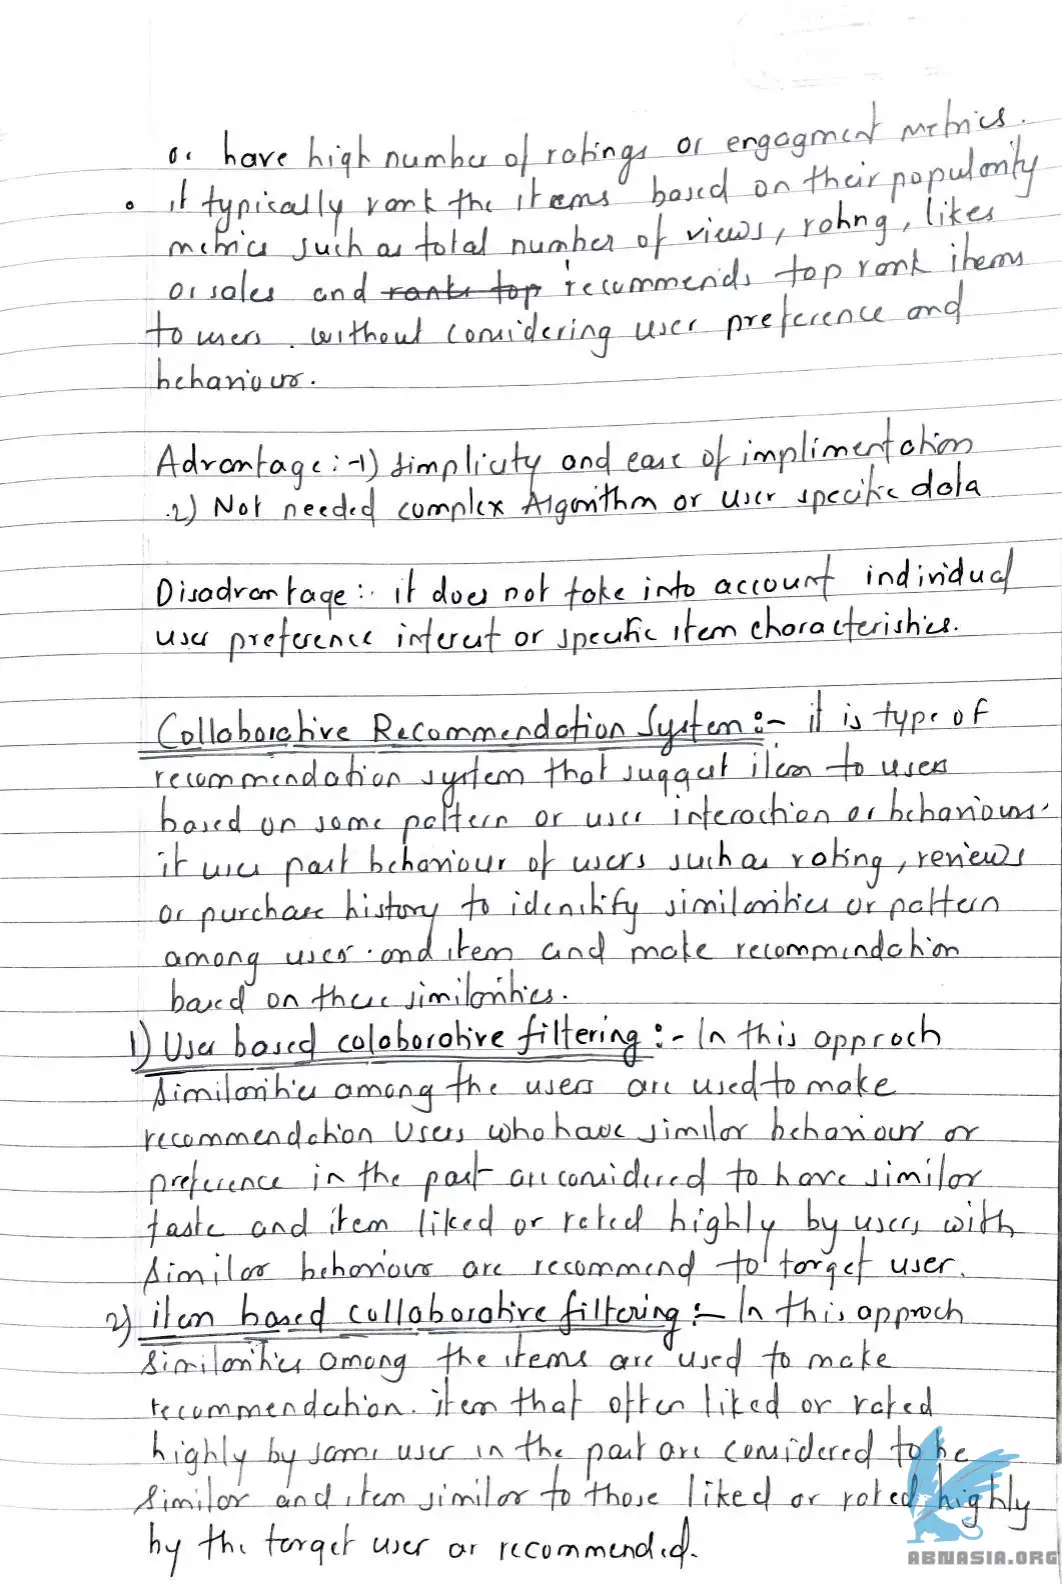 or have high number of ratings or engagment metrics.
• it typically rank the items based on their popularity
metrics such as total number of views, rating, likes
or sales and ranks top recommends top rank items
to users. without considering user preference and
behaviour.
Advantage :-1) Simplicity and ease of implimentation
2) Not needed complex Algorithm or user specific data
Disadvantage :. it does not take into account individual
user preference interest or specific item characteristics.
Collaborative Recommendation System :- it is type of
recommendation system that suggest item to users
based on some pattern or user interaction or behaviours.
it uses past behaviour of users such as rating, reviews
or purchase history to identify similarities or pattern
among user and item and make recommendation
based on these similarities.
1) User based colaborative filtering :- In this approch
Similarities among the users are used to make
recommendation Users who have similar behaviour or
preference in the past are considered to have similar
taste and item liked or rated highly by users with
Similar behaviour are recommend to target user.
2) item based collaborative filtering :- In this approch
Similarities among the items are used to make
recommendation. item that often liked or rated
highly by same user in the past are considered to be
Similar and item similar to those liked or rated highly
by the target user or recommended.
ABNASIA.ORG